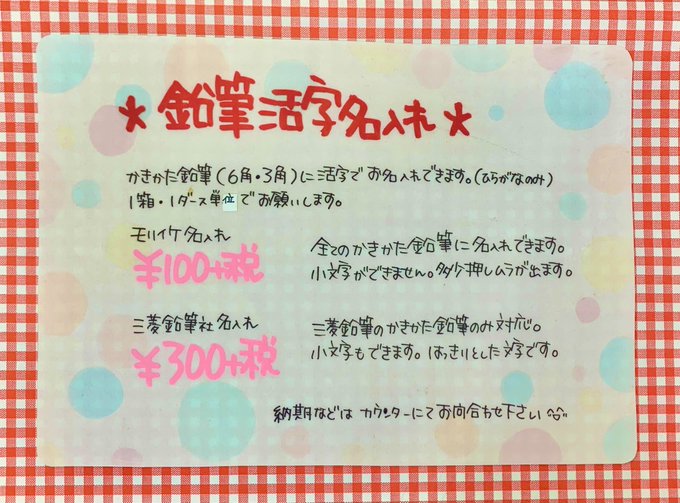 ★鉛筆活字名入れ★
かきかた鉛筆(6角・3角)に活字でお名入れできます。(ひらがなのみ)
1箱・1ダース単位でお願いします。
モリイケ名入れ
¥100+税
全てのかきかた鉛筆に名入れできます。
小文字ができません。多少押しムラが出ます。
三菱鉛筆社名入れ
¥300+税
三菱鉛筆のかきかた鉛筆のみ対応。
小文字もできます。はっきりとした文字です。
納期などはカウンターにてお問合わせ下さい^^